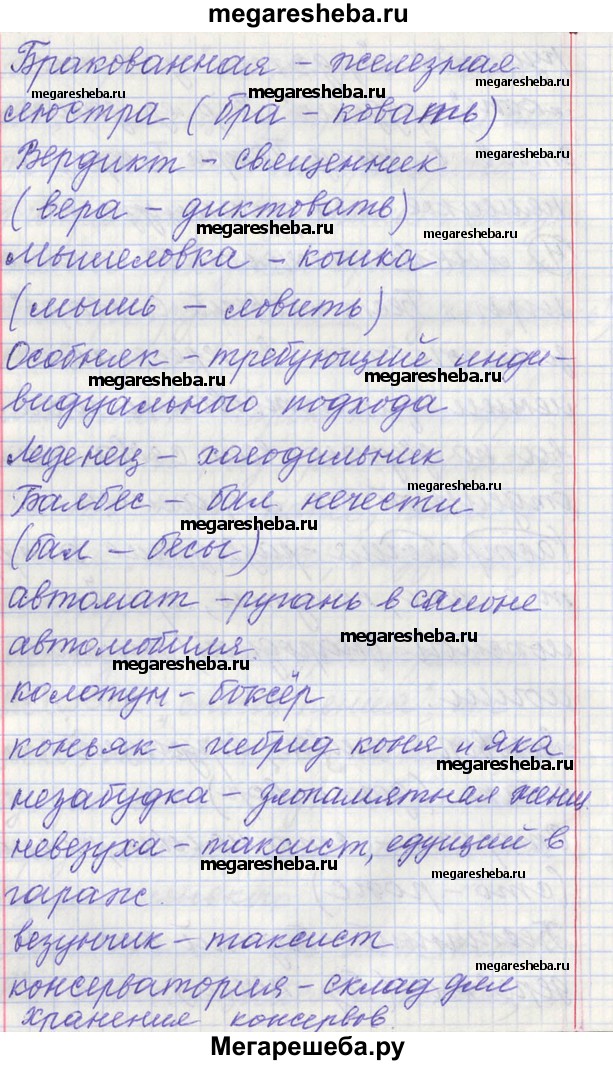 megaresheba.ru
Бракованная – железная
megaresheba.ru
megaresheba.ru
megaresheba.ru
люстра (бра – ковать)
Вердикт – священник
megaresheba.ru
(вера – диктовать)
megaresheba.ru
megaresheba.ru
Мышеловка – кошка
(мышь – ловить)
Особняк – требующий инди-
megaresheba.ru
megaresheba.ru
видуального подхода
Леденец – холодильник
megaresheba.ru
Балбес – бал нечести
megaresheba.ru
(бал – бесы)
автомат – ругань в салоне
megaresheba.ru
автомобиля.
megaresheba.ru
колотун – боксёр
коньяк – гибрид коня и яка
megaresheba.ru
незабудка – злопамятная женщ.
невезуха – таксист, едущий в
megaresheba.ru
megaresheba.ru
гараж.
везунчик – таксист
megaresheba.ru
консерватория – склад для
хранения консервов.
Мегарешеба.ру